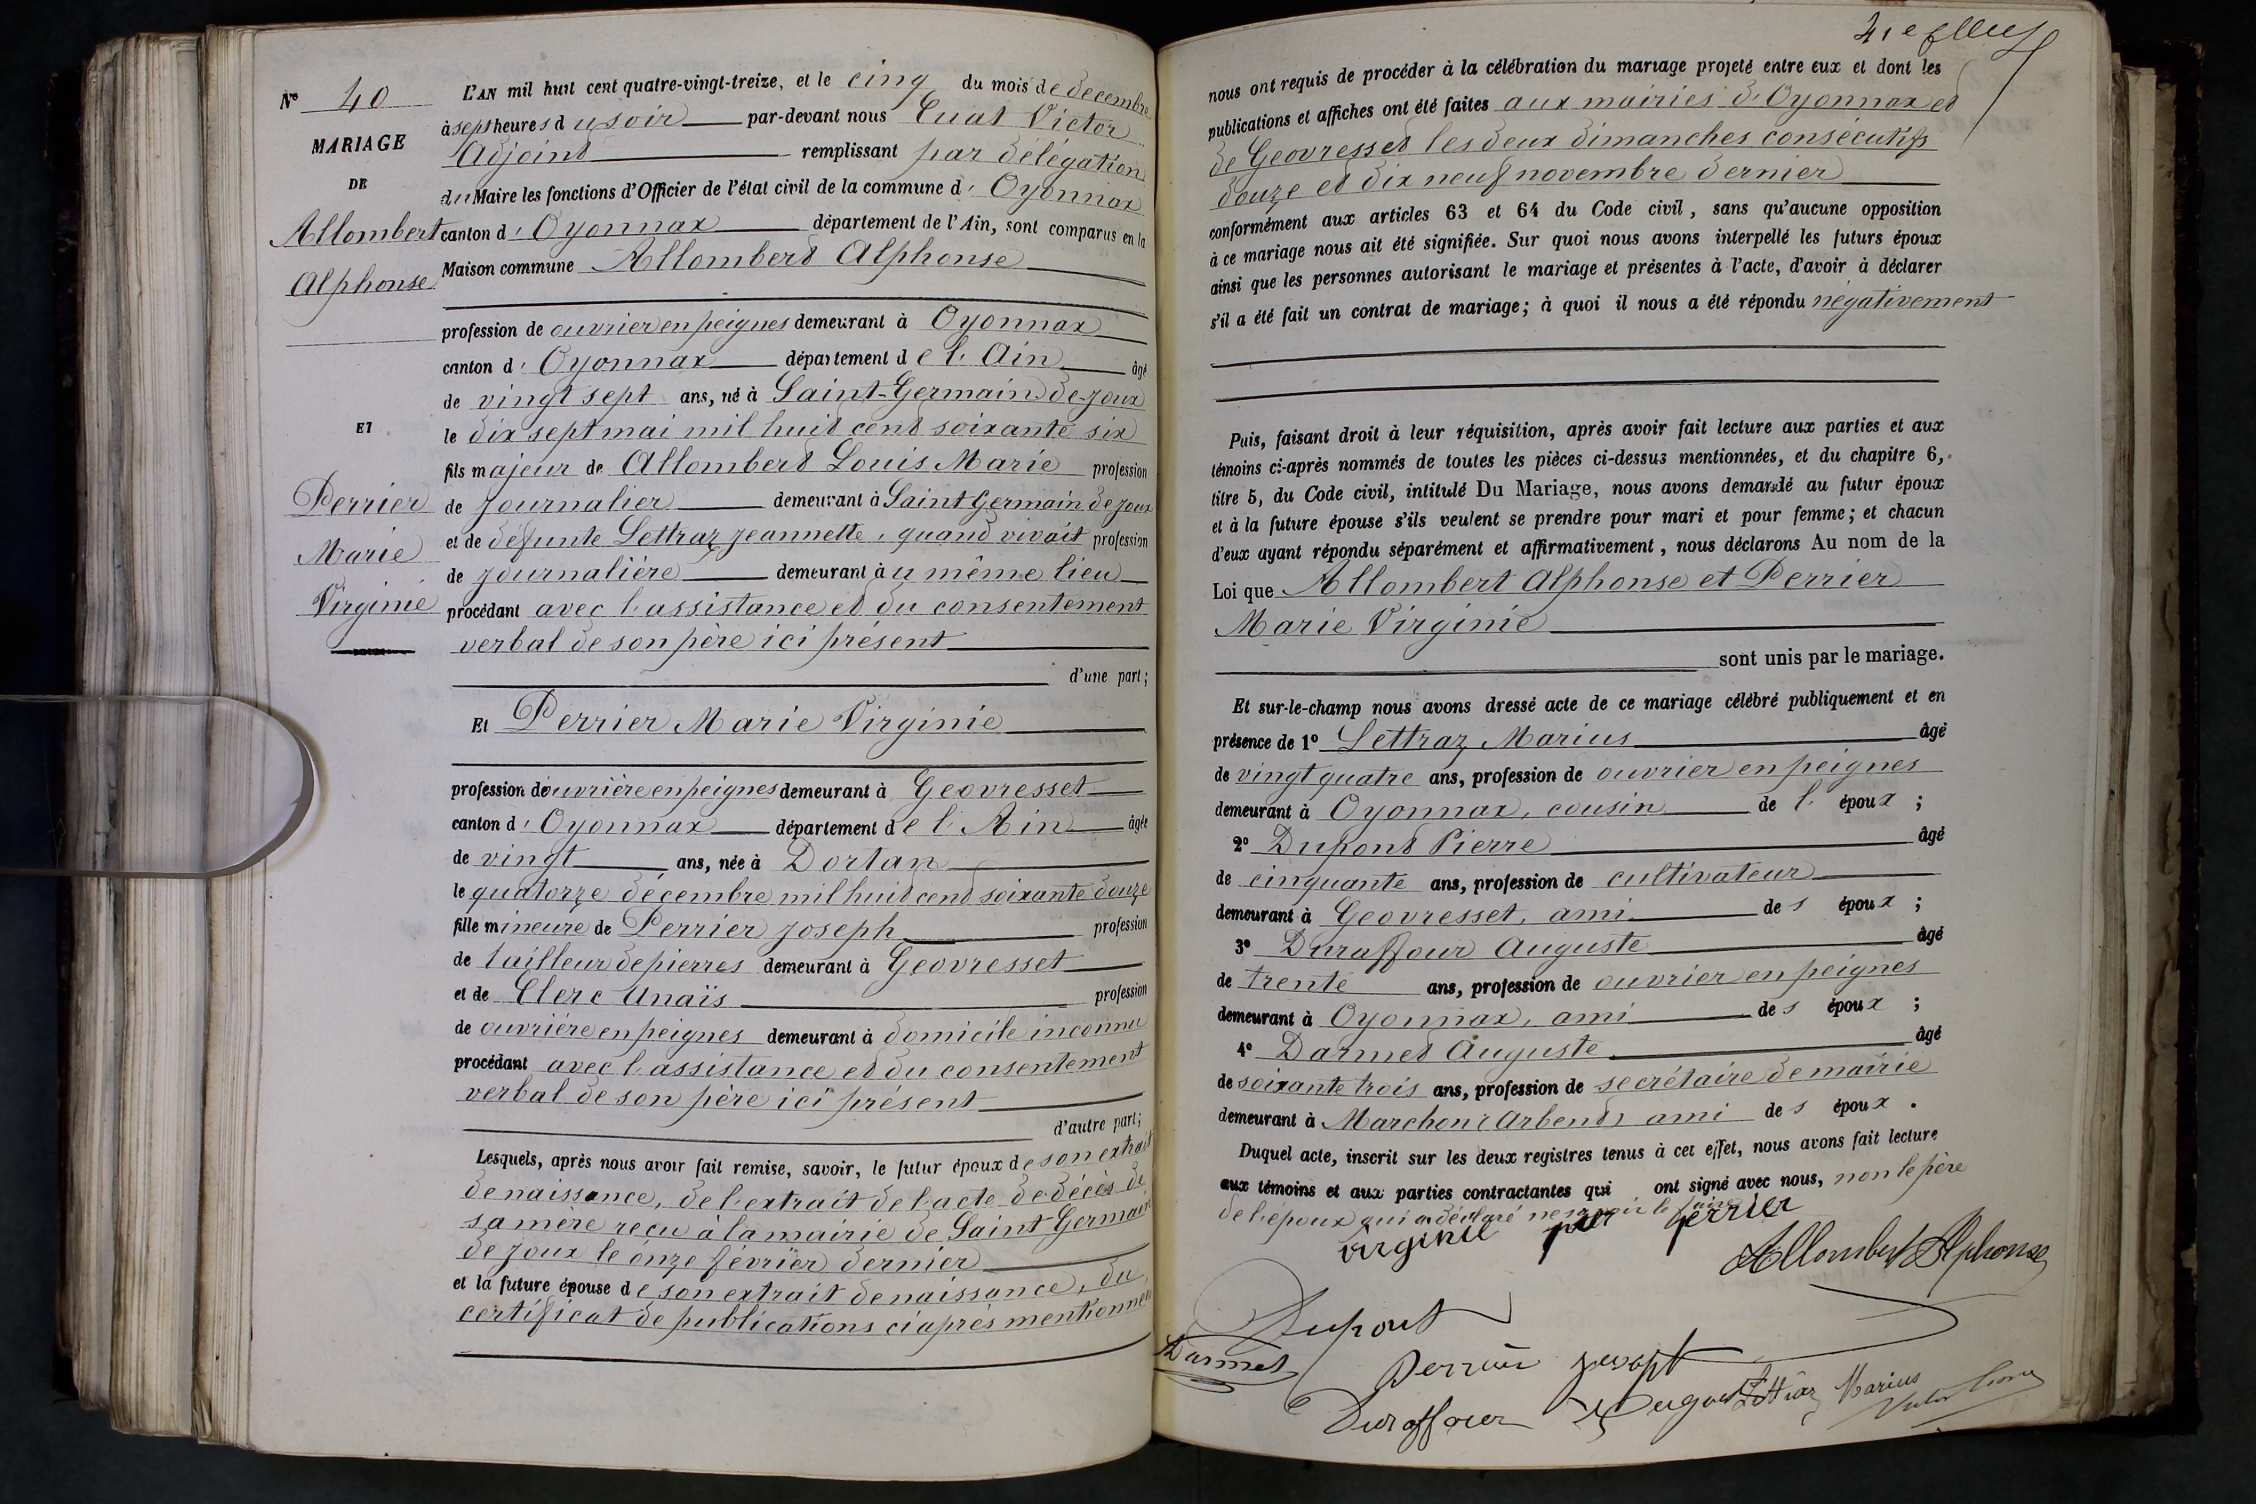 Nº 40
MARIAGE
DE
Allombert
Alphonse
ET
Perrier
Marie
Virginie
L'AN mil huit cent quatre-vingt-treize, et le cinq du mois de décembre
à sept heures du soir par-devant nous Cuat Victor
Adjoint remplissant par délégation
du Maire les fonctions d'Officier de l'état civil de la commune d' Oyonnax
canton d' Oyonnax département de l'Ain, sont comparus en la
Maison commune Allombert Alphonse
profession de ouvrier en peignes demeurant à Oyonnax
canton d' Oyonnax département de l'Ain âgé
de vingt sept ans, né à Saint-Germain de Joux
le dix sept mai mil huit cent soixante six
fils majeur de Allombert Louis Marie profession
de journalier demeurant à Saint Germain de Joux
et de défunte Lettraz Jeannette, quand vivait profession
de journalière demeurant à u même lieu
procédant avec l'assistance et du consentement
verbal de son père ici présent
d'une part;
Et Perrier Marie Virginie
profession de ouvrière en peignes demeurant à Geovresset
canton d' Oyonnax département de l'Ain âgée
de vingt ans, née à Dortan
le quatorze décembre mil huit cent soixante douze
fille mineure de Perrier Joseph profession
de tailleur de pierres demeurant à Geovresset
et de Clerc Anaïs profession
de ouvrière en peignes demeurant à domicile inconnu
procédant avec l'assistance et du consentement
verbal de son père ici présent
d'autre part;
Lesquels, après nous avoir fait remise, savoir, le futur époux de son extrait
de naissance, de l'extrait de l'acte de décès de
sa mère reçu à la mairie de Saint Germain
de Joux le onze février dernier
et la future épouse de son extrait de naissance, du
certificat de publications ci après mentionnées
nous ont requis de procéder à la célébration du mariage projeté entre eux et dont les
publications et affiches ont été faites aux mairies d'Oyonnax et
de Geovresset les deux dimanches consécutifs
douze et dix neuf novembre dernier
conformément aux articles 63 et 64 du Code civil, sans qu'aucune opposition
à ce mariage nous ait été signifiée. Sur quoi nous avons interpellé les futurs époux
ainsi que les personnes autorisant le mariage et présentes à l'acte, d'avoir à déclarer
s'il a été fait un contrat de mariage; à quoi il nous a été répondu négativement
Puis, faisant droit à leur réquisition, après avoir fait lecture aux parties et aux
témoins ci-après nommés de toutes les pièces ci-dessus mentionnées, et du chapitre 6,
titre 5, du Code civil, intitulé Du Mariage, nous avons demandé au futur époux
et à la future épouse s'ils veulent se prendre pour mari et pour femme; et chacun
d'eux ayant répondu séparément et affirmativement, nous déclarons Au nom de la
Loi que Allombert Alphonse et Perrier
Marie Virginie
sont unis par le mariage.
Et sur-le-champ nous avons dressé acte de ce mariage célébré publiquement et en
présence de 1º Lettraz Marius âgé
de vingt quatre ans, profession de ouvrier en peignes
demeurant à Oyonnax, cousin de l' époux ;
2º Dupont Pierre âgé
de cinquante ans, profession de cultivateur
demeurant à Geovresset, ami des époux ;
3º Duraffour Auguste âgé
de trente ans, profession de ouvrier en peignes
demeurant à Oyonnax, ami des époux ;
4º Darmet Auguste âgé
de soixante trois ans, profession de secrétaire de mairie
demeurant à Marchon (Arbent) ami des époux .
Duquel acte, inscrit sur les deux registres tenus à cet effet, nous avons fait lecture
aux témoins et aux parties contractantes qui ont signé avec nous, non le père
de l'époux qui a déclaré ne savoir le faire
virginie perrier
Allombert Alphonse
Dupont
Darmet
Perrier
Duraffour Lettraz Marius
Victor